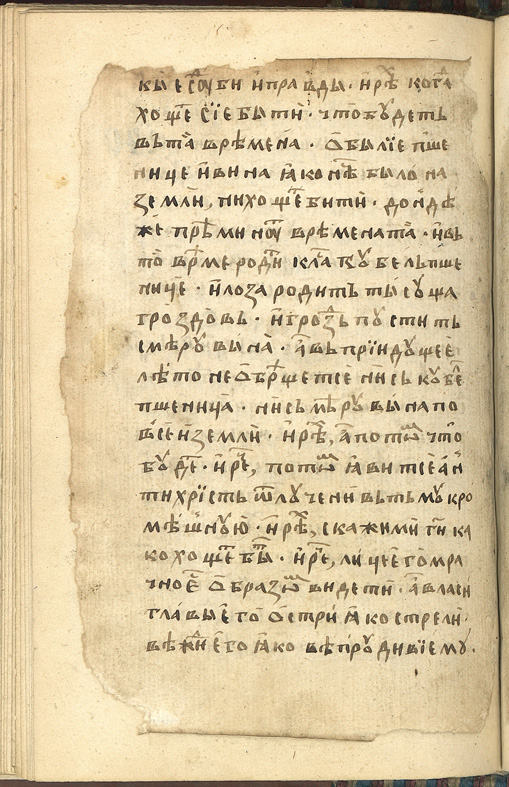 кы есоуби и҆правды · и҆рѣ когда
хощеⷮ сїе быти · что будеть
въта времена · ѻ҆былїе пше
нице и҆вина ꙗ҆ко нѣⷭ было на
земли, нихощеⷮ бити · дондѣ
же прѣминоуⷮ времената · и҆въ
то время родиⷮ кла кубель пше
нице · и҆лоза родить тысуща
гроздовь · и҆грозⷣь пустить
смѣру вина · а҆въ прїидущее
лѣто не ѻ҆брѧщетсе нись кубеⷧ
пшеница · нись мѣру вина по
всеи земли · и҆рѣⷯ, а҆потоⷨ что
будеⷮ · и҆реⷱ, потоⷨ ꙗ҆витсе а҆н
тихрїсть ѿлучени вьтьму кро
мѣшную · и҆рѣⷯ, скажими ги ка
ко хощеⷮ быⷮ · и҆реⷱ, лице е҆го мра
чно еⷭ ѻ҆бразоⷨ видети · а҆власи
главы е҆го ѻ҆стри ꙗ҆ко стрели ·
вѣжⷣи е҆го ꙗ҆ко въпрудивїему ·